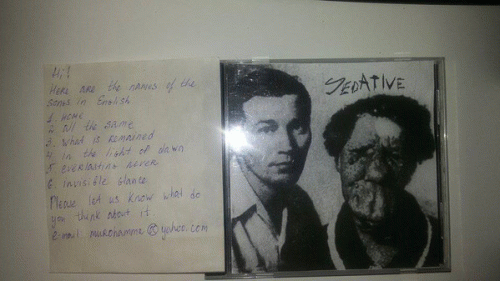 Hi!
Here are the names of the
songs in English
1. Home
2. All the same
3. What is remained
4. in the light of dawn
5. everlasting never
6. invisible stance
Please let us know what do
you think about it
e-mail: murohamma@yahoo.com
SEDATIVE